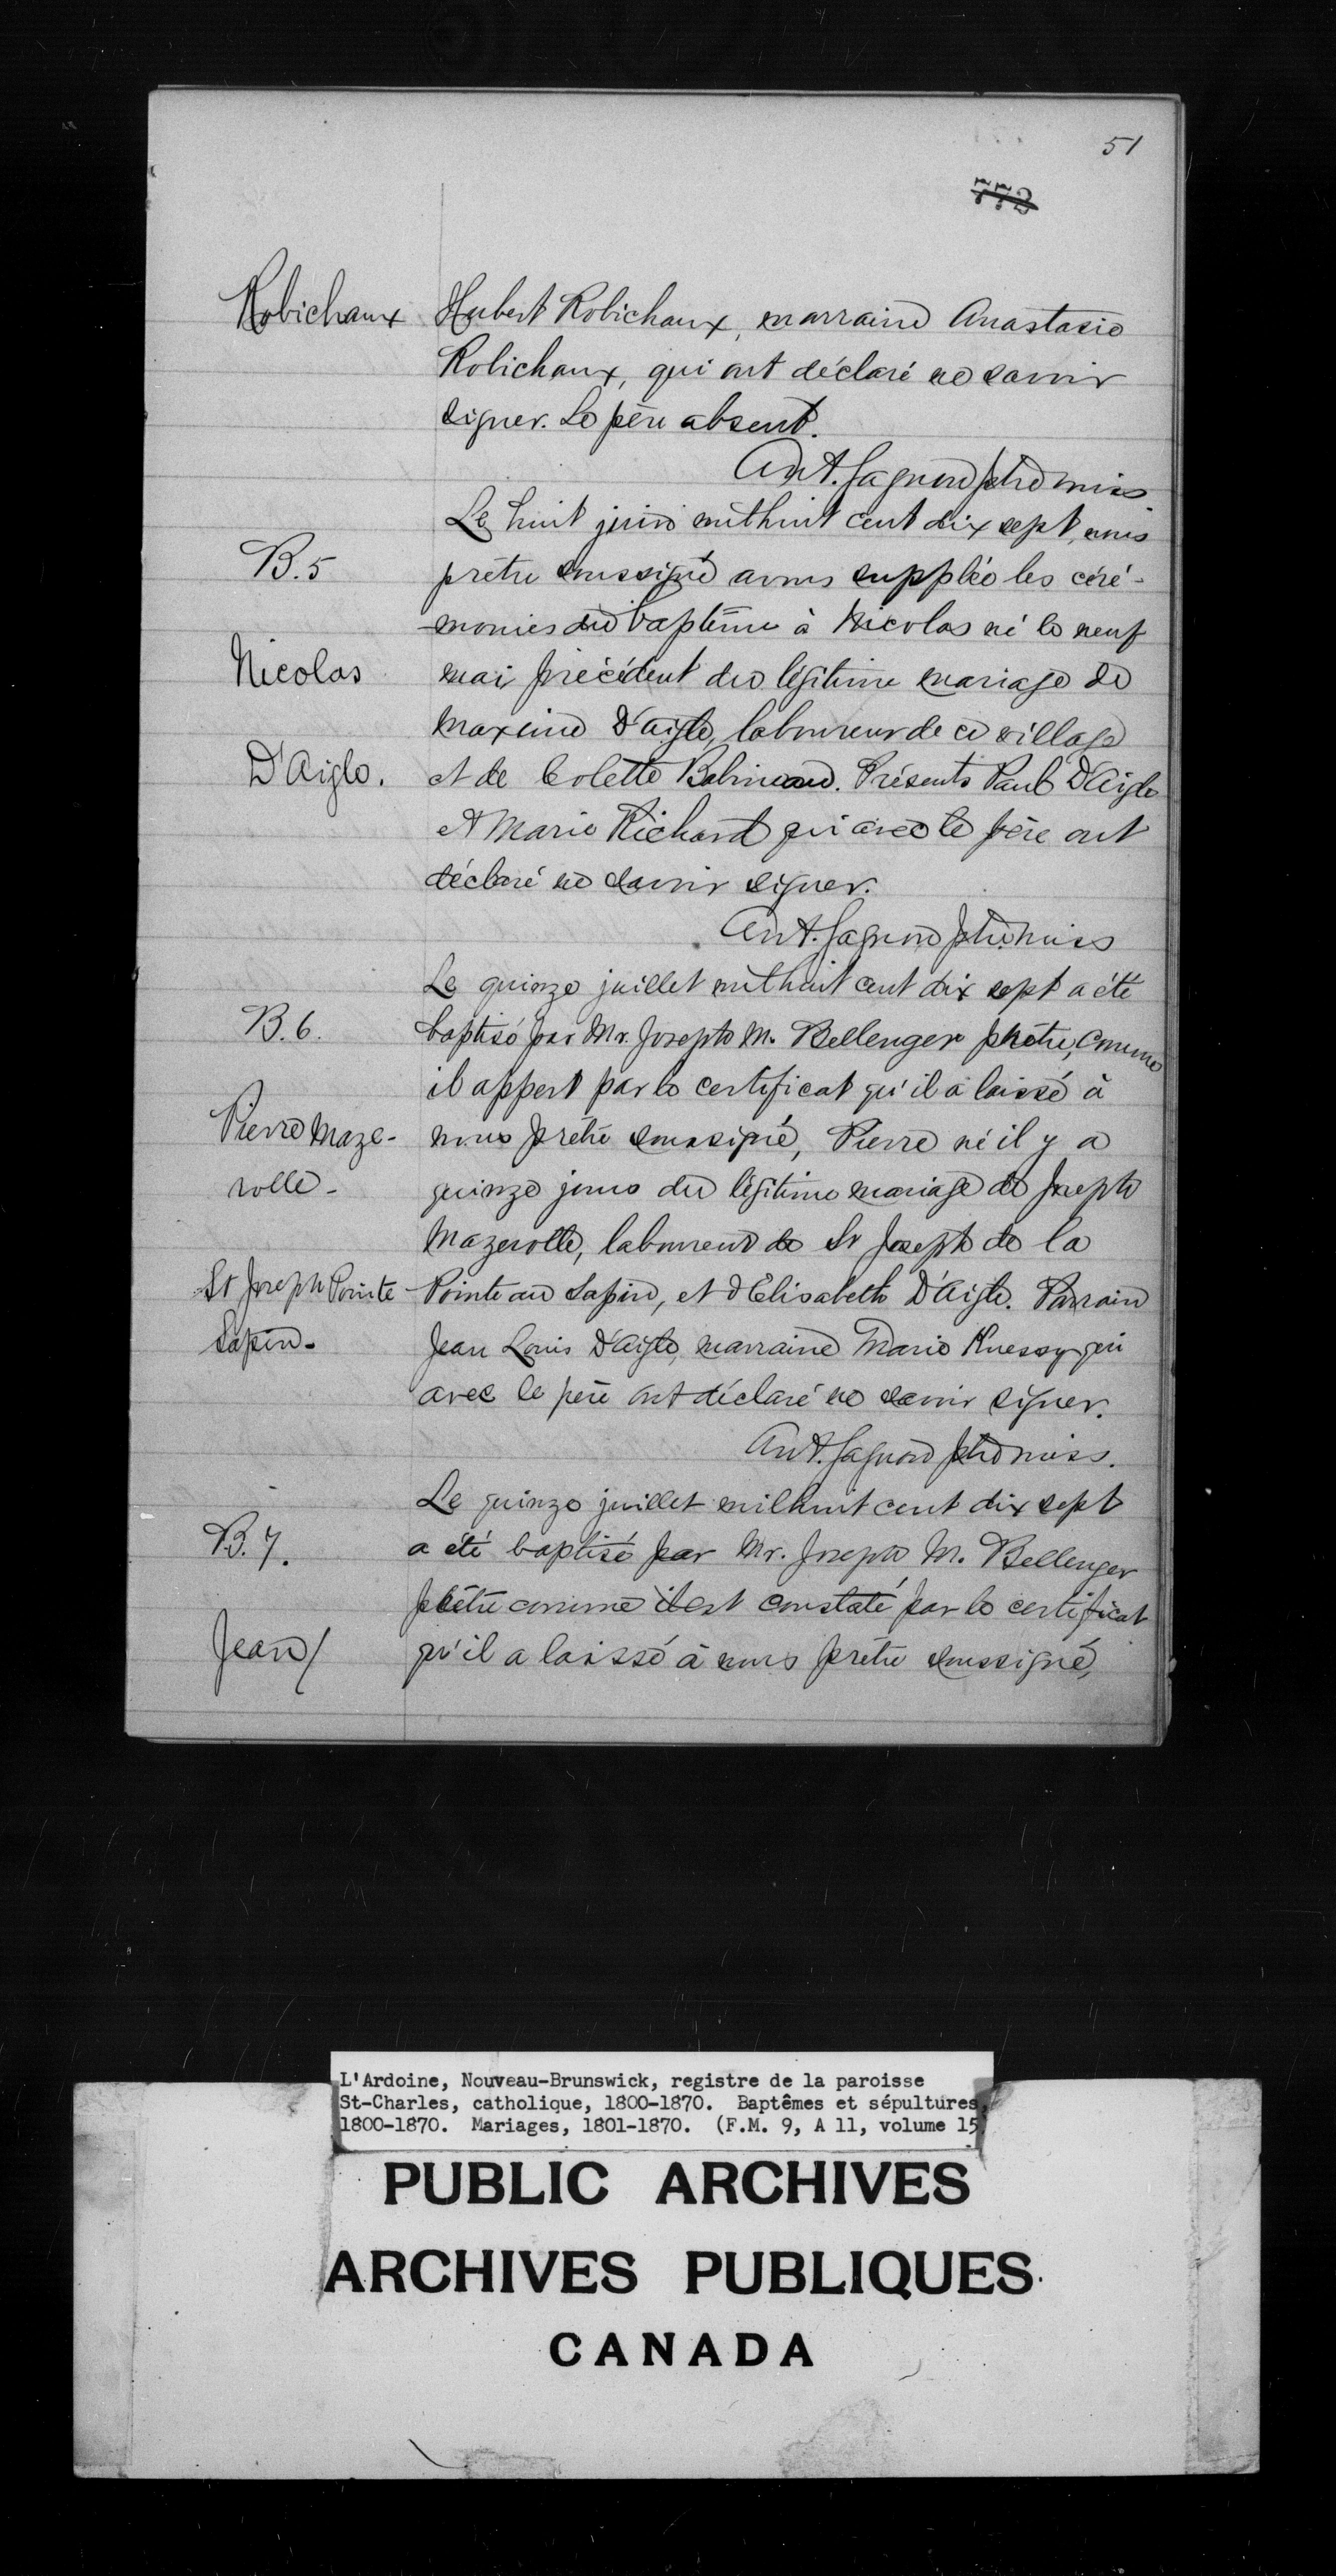 51
773
Robichaux Hubert Robichaux, marraine Anastasie
Robichaux, qui ont déclaré ne savoir
signer. Le père absent.
Ant. Gagnon ptre miss
Le huit juin mil huit cent dix sept, nous
B. 5 prêtre soussigné avons suppléé les céré-
monies du baptême à Nicolas né le neuf
Nicolas mai précédent du légitime mariage de
Maxime D'aigle, laboureur de ce village
D'Aigle. et de Colette Babineau. Présents Paul D'Aigle
et Marie Richard qui avec le père ont
déclaré ne savoir signer.
Ant. Gagnon ptre. miss
Le quinze juillet mil huit cent dix sept a été
B. 6. baptisé par Mr. Joseph M. Bellenger prêtre, comme
il appert par le certificat qu'il a laissé à
Pierre Maze- nous prêtre soussigné, Pierre né il y a
rolle - quinze jours du légitime mariage de Joseph
Mazerolle, laboureur de St Joseph de la
St Joseph Pointe - Pointe au Sapin, et d'Elisabeth D'Aigle. Parrain
Sapin - Jean Louis D'Aigle, marraine Marie Kuessy qui
avec le père ont déclaré ne savoir signer.
Ant. Gagnon ptre miss.
Le quinze juillet mil huit cent dix sept
B. 7. a été baptisé par Mr. Joseph M. Bellenger
prêtre comme il est constaté par le certificat
Jean / qu'il a laissé à nous prêtre soussigné,
L'Ardoine, Nouveau-Brunswick, registre de la paroisse
St-Charles, catholique, 1800-1870. Baptêmes et sépultures,
1800-1870. Mariages, 1801-1870. (F.M. 9, A 11, volume 15)
PUBLIC ARCHIVES
ARCHIVES PUBLIQUES
CANADA